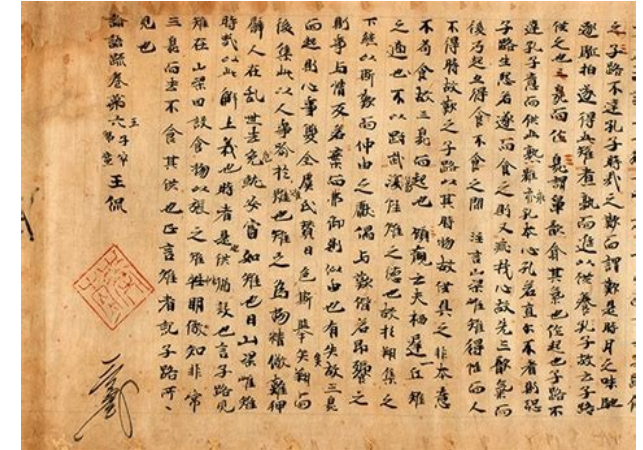 之子路不達孔子時哉之歎而謂歎是時月之味馳
逐驅拍遂得此雉煮熟而進以供養孔子故云子路
供之也三臭而作臭謂鼻歆翕其氣也作起也子路不
達孔子意而供此熟雉乖孔本心孔若直尔不者則恐
子路生怨若遂而食之則又乖我心故先三歎氣而
後乃起亦得食不食之間 注言山梁雌雉得性而人
不得時故歎之子路以其時物故供具之非本意
不苟食故三臭而起也 顧歡云夫栖遲一丘雉
之適也不以剛武傷性雉之德也故於翔集之
下繼以斯歎而仲由之獻偶与歎諧若即饗之
則事与情反若棄而弗御則似由也有失故三臭
而起則心事雙合虞氏贊曰色斯舉矣翔而
後集此以人事喻於雉也雉之為物精儆難狎
譬人在乱世去危就安當如雉也曰山梁雌雉
時哉以此解上義也時者是供猶設也言子路見
雉在山梁因設食物以張之雉性明儆知非常
三臭而去不食其供也正言雌者記子路所
見也
論語疏卷第六 王侃